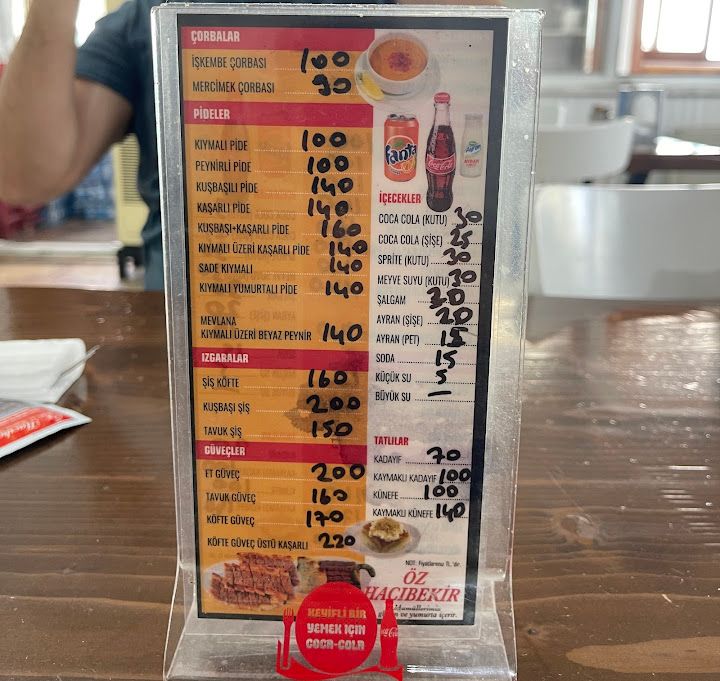 ÇORBALAR
İŞKEMBE ÇORBASI 100
MERCİMEK ÇORBASI 90
PİDELER
KIYMALI PİDE 100
PEYNİRLİ PİDE 100
KUŞBAŞILI PİDE 140
KAŞARLI PİDE 140
KUŞBAŞI+KAŞARLI PİDE 160
KIYMALI ÜZERİ KAŞARLI PİDE 140
SADE KIYMALI 140
KIYMALI YUMURTALI PİDE 140
MEVLANA
KIYMALI ÜZERİ BEYAZ PEYNİR 140
IZGARALAR
ŞİŞ KÖFTE 160
KUŞBAŞI ŞİŞ 200
TAVUK ŞİŞ 150
GÜVEÇLER
ET GÜVEÇ 200
TAVUK GÜVEÇ 160
KÖFTE GÜVEÇ 170
KÖFTE GÜVEÇ ÜSTÜ KAŞARLI 220
Fanta
Coca-Cola
İÇECEKLER
COCA COLA (KUTU) 30
COCA COLA (ŞİŞE) 25
SPRİTE (KUTU) 30
MEYVE SUYU (KUTU) 30
ŞALGAM 20
AYRAN (ŞİŞE) 20
AYRAN (PET) 15
SODA 15
KÜÇÜK SU 5
BÜYÜK SU —
TATLILAR
KADAYIF 70
KAYMAKLI KADAYIF 100
KÜNEFE 100
KAYMAKLI KÜNEFE 140
NOT: Fiyatlarımız TL'dir.
ÖZ
HACIBEKİR
ve yumurta içerir.
KEYİFLİ BİR
YEMEK İÇİN
COCA-COLA
Coca-Cola